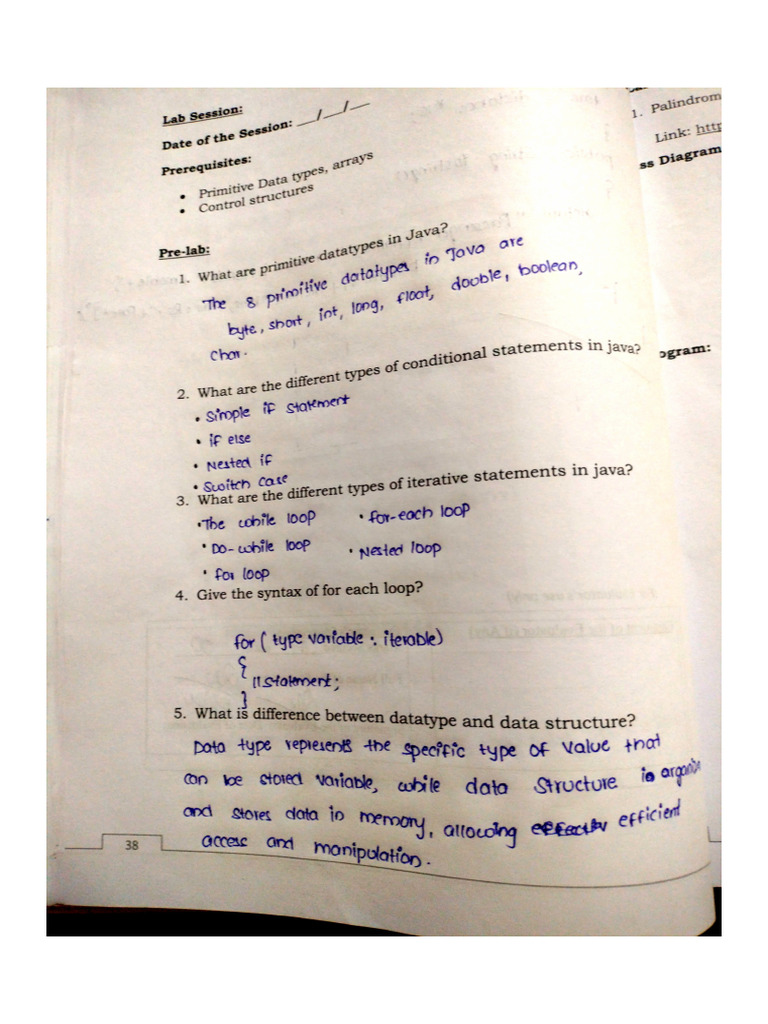 Lab Session:
Date of the Session: __/__/__
Prerequisites:
• Primitive Data types, arrays
• Control structures
Pre-lab:
1. What are primitive datatypes in Java?
The 8 primitive datatypes in Java are
byte, short, int, long, float, double, boolean,
char.
2. What are the different types of conditional statements in java?
• Simple if statement
• if else
• Nested if
• Switch case
3. What are the different types of iterative statements in java?
• The while loop • for-each loop
• Do-while loop • Nested loop
• for loop
4. Give the syntax of for each loop?
for ( type variable : iterable)
{
//statement;
}
5. What is difference between datatype and data structure?
Data type represents the specific type of value that
can be stored variable, while data structure is
and stores data in memory, allowing efficient
access and manipulation.
38
1. Palindrom
Link: http
ss Diagram
ogram: